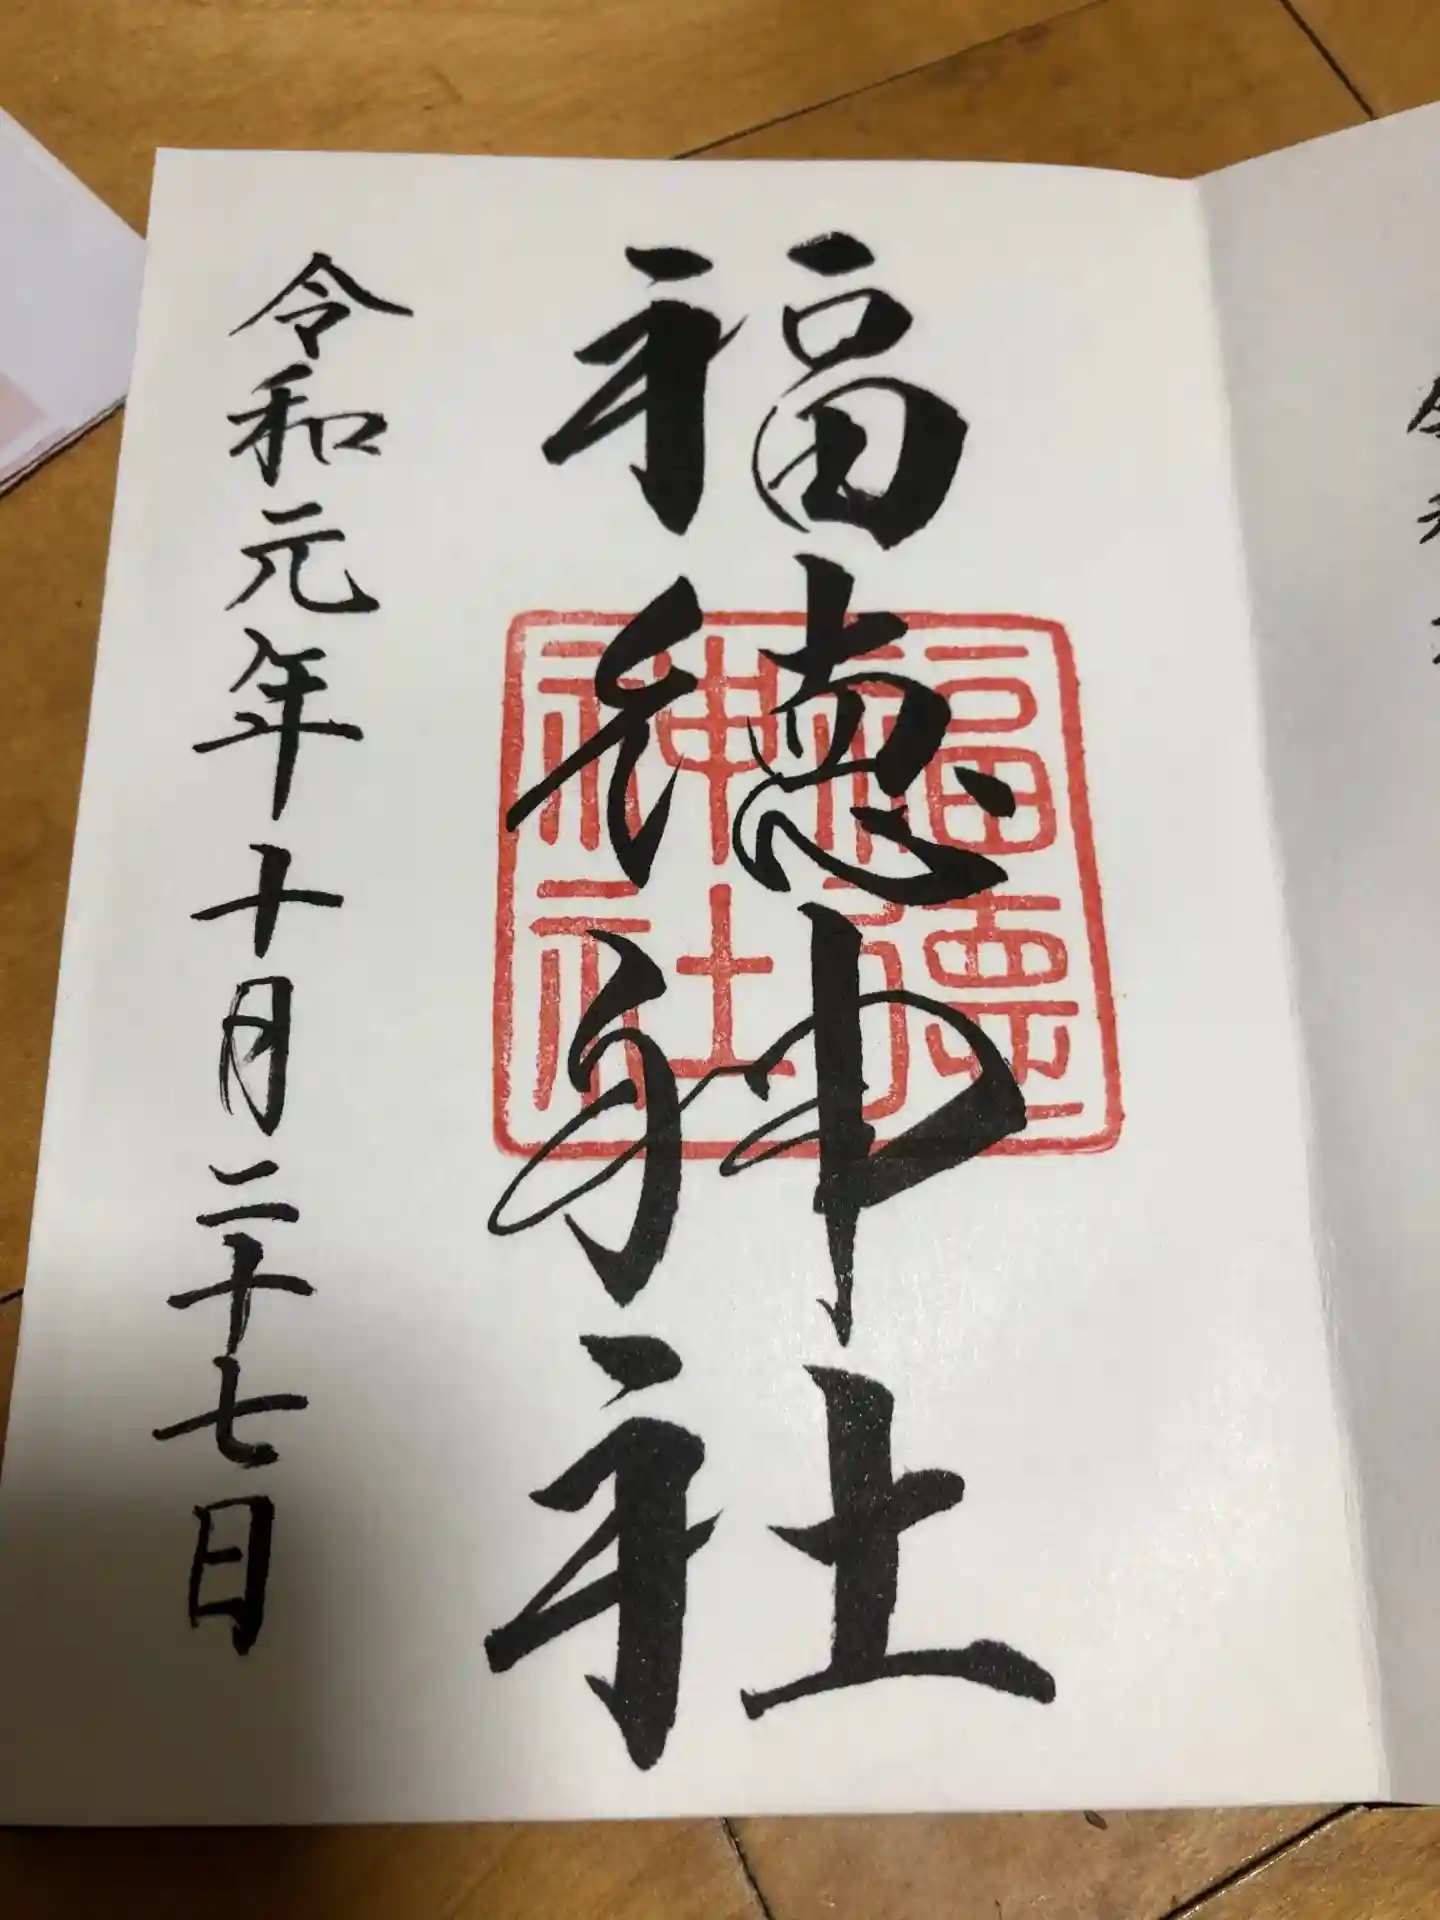 福徳神社
福徳
神社
令和元年十月二十七日